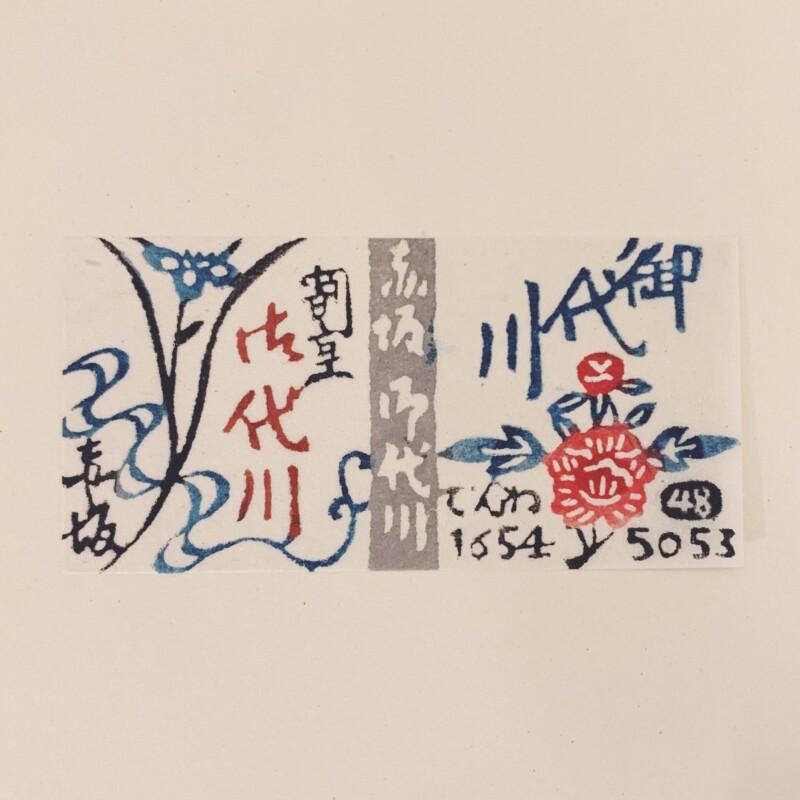 割烹
御代川
赤坂
赤坂 御代川
御代川
でんわ 48
1654 5053